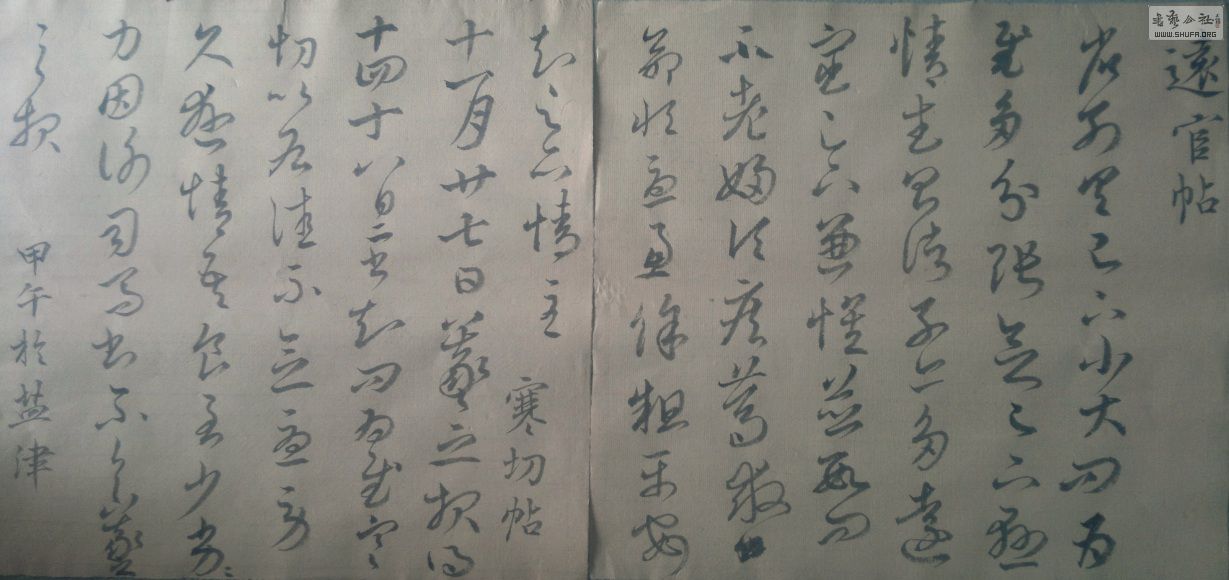 遠官帖
省別具足下小大問為
慰多分張念足下懸
情武昌諸子亦多遠
宦足下兼懷並數問
不老婦頃疾篤救
命恒憂慮餘粗平安
知足下情至
寒切帖
十一月廿七日羲之報得
十四十八日二書知問為慰寒
切比各佳不念憂勞
久懸情吾食至少劣〻
力因謝司馬書不一一羲
之報
甲午於盐津
WWW.SHUFA.ORG